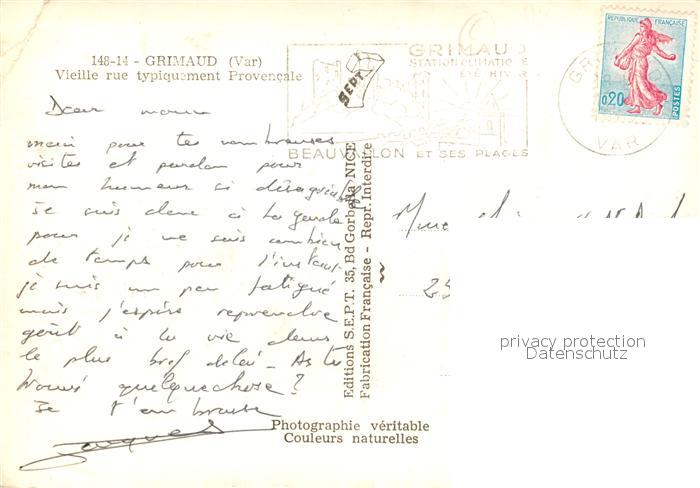 148-14 - GRIMAUD (Var)
Vieille rue typiquement Provençale
SEPT
GRIMAUD
STATION CLIMATIQUE
ÉTÉ HIVER
BEAUVALLON ET SES PLAGES
REPUBLIQUE FRANÇAISE
0,20
POSTES
VAR
merci pour tes nombreuses
visites et pardon pour
mon humeur si désagréable
Je suis donc à la garde
pour je ne sais combien
de temps pour l'instant
je suis un peu fatigué
mais j'espère reprendre
goût à la vie dans
le plus bref délai - As tu
trouvé quelquechose?
Je t'embrasse
Jacques
Editions S.E.P.T. 35, Bd Gorbella NICE
Fabrication Française - Repr. Interdire
Mme
25
privacy protection
Datenschutz
Photographie véritable
Couleurs naturelles